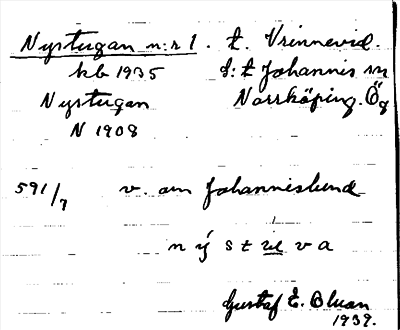 Nystugan n:r 1. t. Vrinnevid.
hb 1935 S:t Johannis sn
Nystugan Norrköping. Ög
N 1908
591/7 v. om Johannislund
n ý s t u v a
Gustaf E. Bluan
1939.